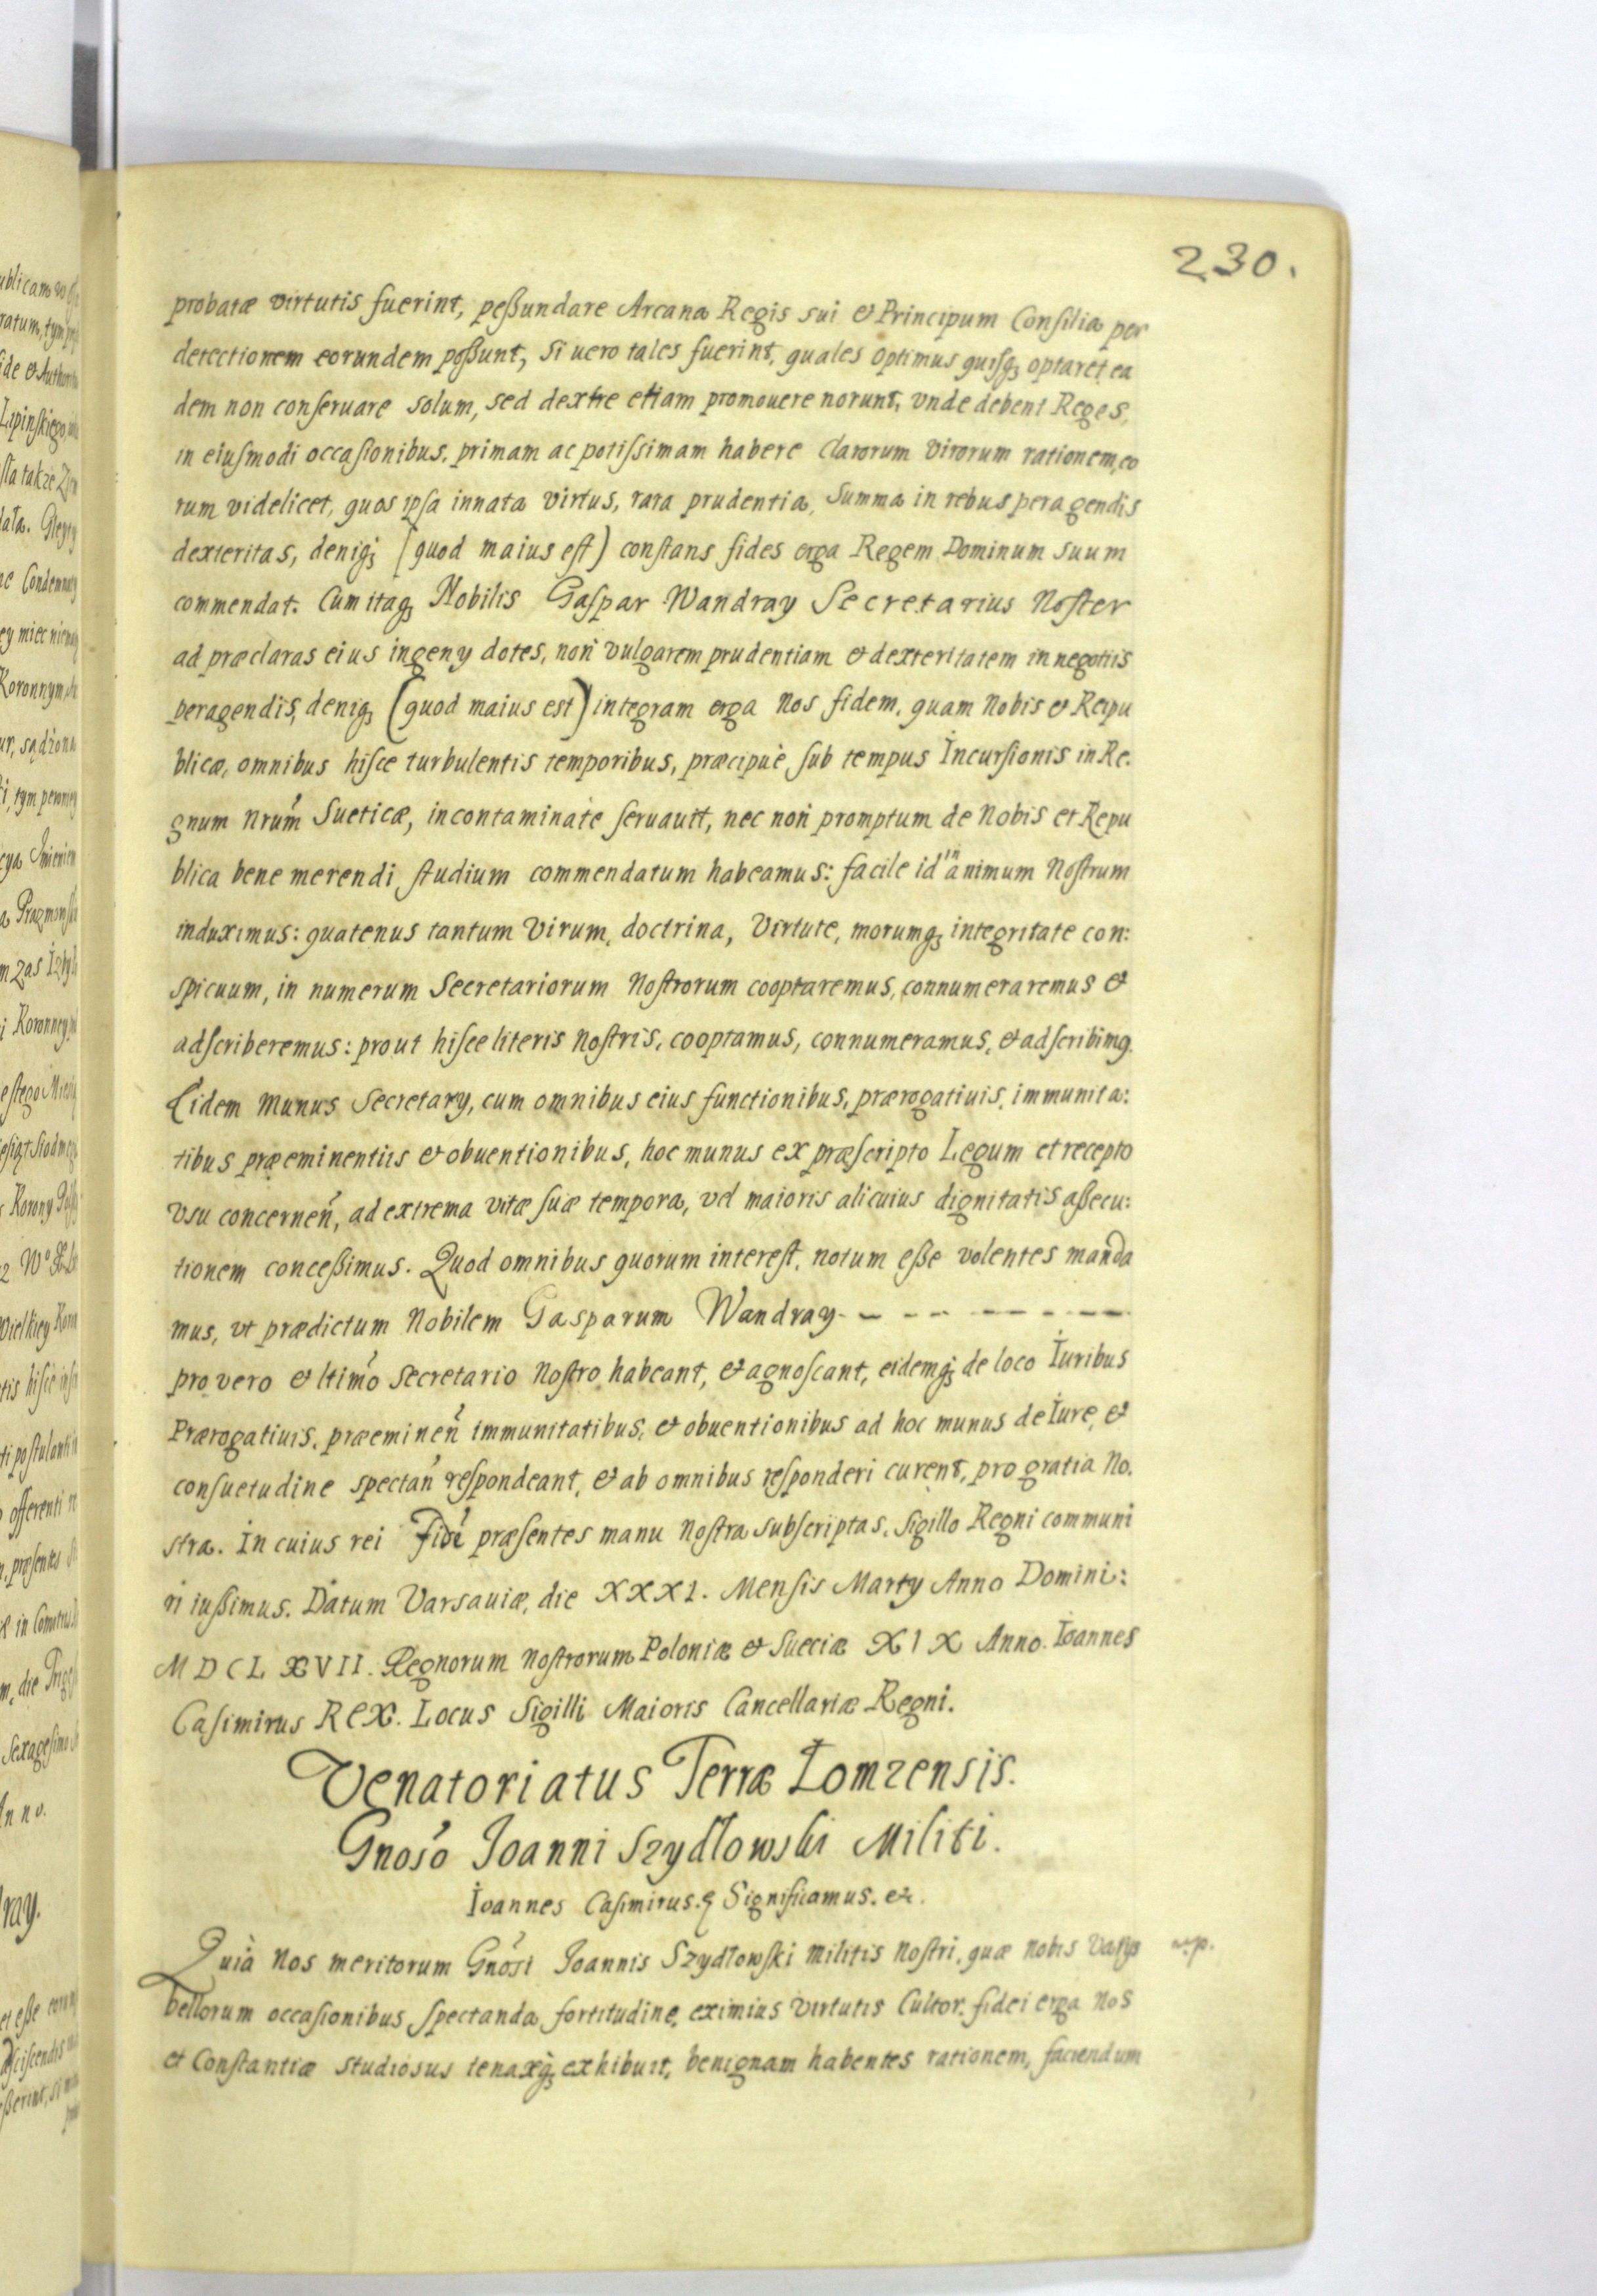 230.
probatæ virtutis fuerint, peßundare Arcana Regis sui & Principum Consilia per
detectionem eorundem poßunt, si uero tales fuerint, quales optimus quisq; optaret ea
dem non conseruare solum, sed dextre etiam promouere norunt, vnde debent Reges,
in eiusmodi occasionibus, primam ac potissimam habere clarorum virorum rationem, eo
rum videlicet, quos ipsa innata virtus, rara prudentia, summa in rebus peragendis
dexteritas, deniq; (quod maius est) constans fides erga Regem Dominum suum
commendat. Cum itaq; Nobilis Gaspar Wandray Secretarius Noster
ad præclaras eius ingeny dotes, non vulgarem prudentiam & dexteritatem in negotiis
peragendis, deniq; (quod maius est) integram erga Nos fidem, quam Nobis & Reipu
blicæ, omnibus hisce turbulentis temporibus, præcipuè, sub tempus Incursionis in Re.
gnum Nrum̃ Sueticæ, incontaminate seruauit, nec non promptum de Nobis et Repu
blica bene merendi studium commendatum habeamus: facile id in animum Nostrum
induximus: quatenus tantum Virum, doctrina, Virtute, morumq; integritate con:
spicuum, in numerum Secretariorum Nostrorum cooptaremus, connumeraremus &
adscriberemus: prout hisce literis Nostris, cooptamus, connumeramus, & adscribimq.
Eidem Munus Secretary, cum omnibus eius functionibus, prærogatiuis, immunita:
tibus præeminentiis & obuentionibus, hoc munus ex præscripto Legum et recepto
vsu concernen̄, ad extrema vitæ suæ tempora, vel maioris alicuius dignitatis aßecu:
tionem conceßimus. Quod omnibus quorum interest, notum eße volentes manda
mus, vt prædictum Nobilem Gasparum Wandray - - - - - - - -
pro vero & ltimo̕ Secretario Nostro habeant, & agnoscant, eidemq; de loco Iuribus
Prærogatiuis, præeminen̄ immunitatibus, & obuentionibus ad hoc munus de Iure, &
consuetudine spectan̄ respondeant, & ab omnibus responderi curent, pro gratia No.
stra. In cuius rei Fide̕ præsentes manu Nostra subscriptas, Sigillo Regni communi
ri iußimus. Datum Varsauiæ, die XXXI. Mensis Marty Anno Domini:
MDCLXVII. Regnorum Nostrorum Poloniæ & Sueciæ XIX Anno. Ioannes
Casimirus REX. Locus Sigilli Maioris Cancellariæ Regni.
Venatoriatus Terræ Łomzensis.
Gnoso̕ Joanni Szydłowski Militi.
Ioannes Casimirus. Significamus. etc.
Quià Nos meritorum Gno̕si Joannis Szydłowski Militis Nostri, quæ Nobis Varys
bellorum occasionibus spectanda fortitudine, eximius virtutis Cultor, fidei erga Nos
et Constantiæ studiosus tenaxq; exhibuit, benignam habentes rationem, faciendum